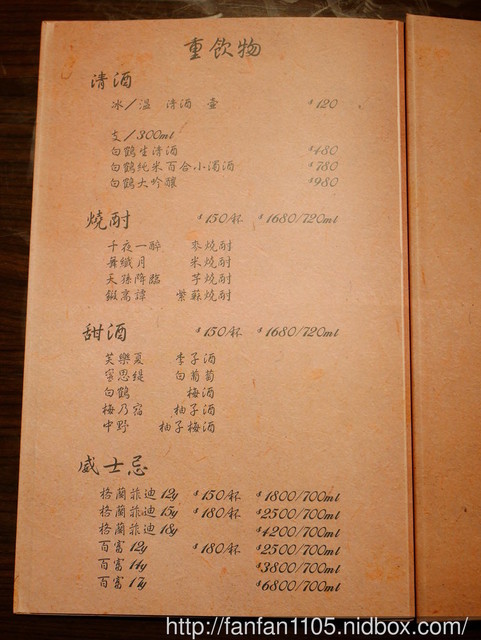 重飲物
清酒
冰／溫 清酒 壺 $120
支／300ml
白鶴生清酒 $480
白鶴純米百合小濁酒 $780
白鶴大吟釀 $980
燒酎 $150/杯 $1680/720ml
千夜一醉 麥燒酎
舞織月 米燒酎
天孫降臨 芋燒酎
鍛高譚 紫蘇燒酎
甜酒 $150/杯 $1680/720ml
芙樂夏 李子酒
寧思緹 白葡萄
白鶴 梅酒
梅乃宿 柚子酒
中野 柚子梅酒
威士忌
格蘭菲迪 12y $150/杯 $1800/700ml
格蘭菲迪 15y $180/杯 $2500/700ml
格蘭菲迪 18y $4200/700ml
百富 12y $180/杯 $2500/700ml
百富 14y $3800/700ml
百富 17y $6800/700ml
http://fanfan1105.nidbox.com/